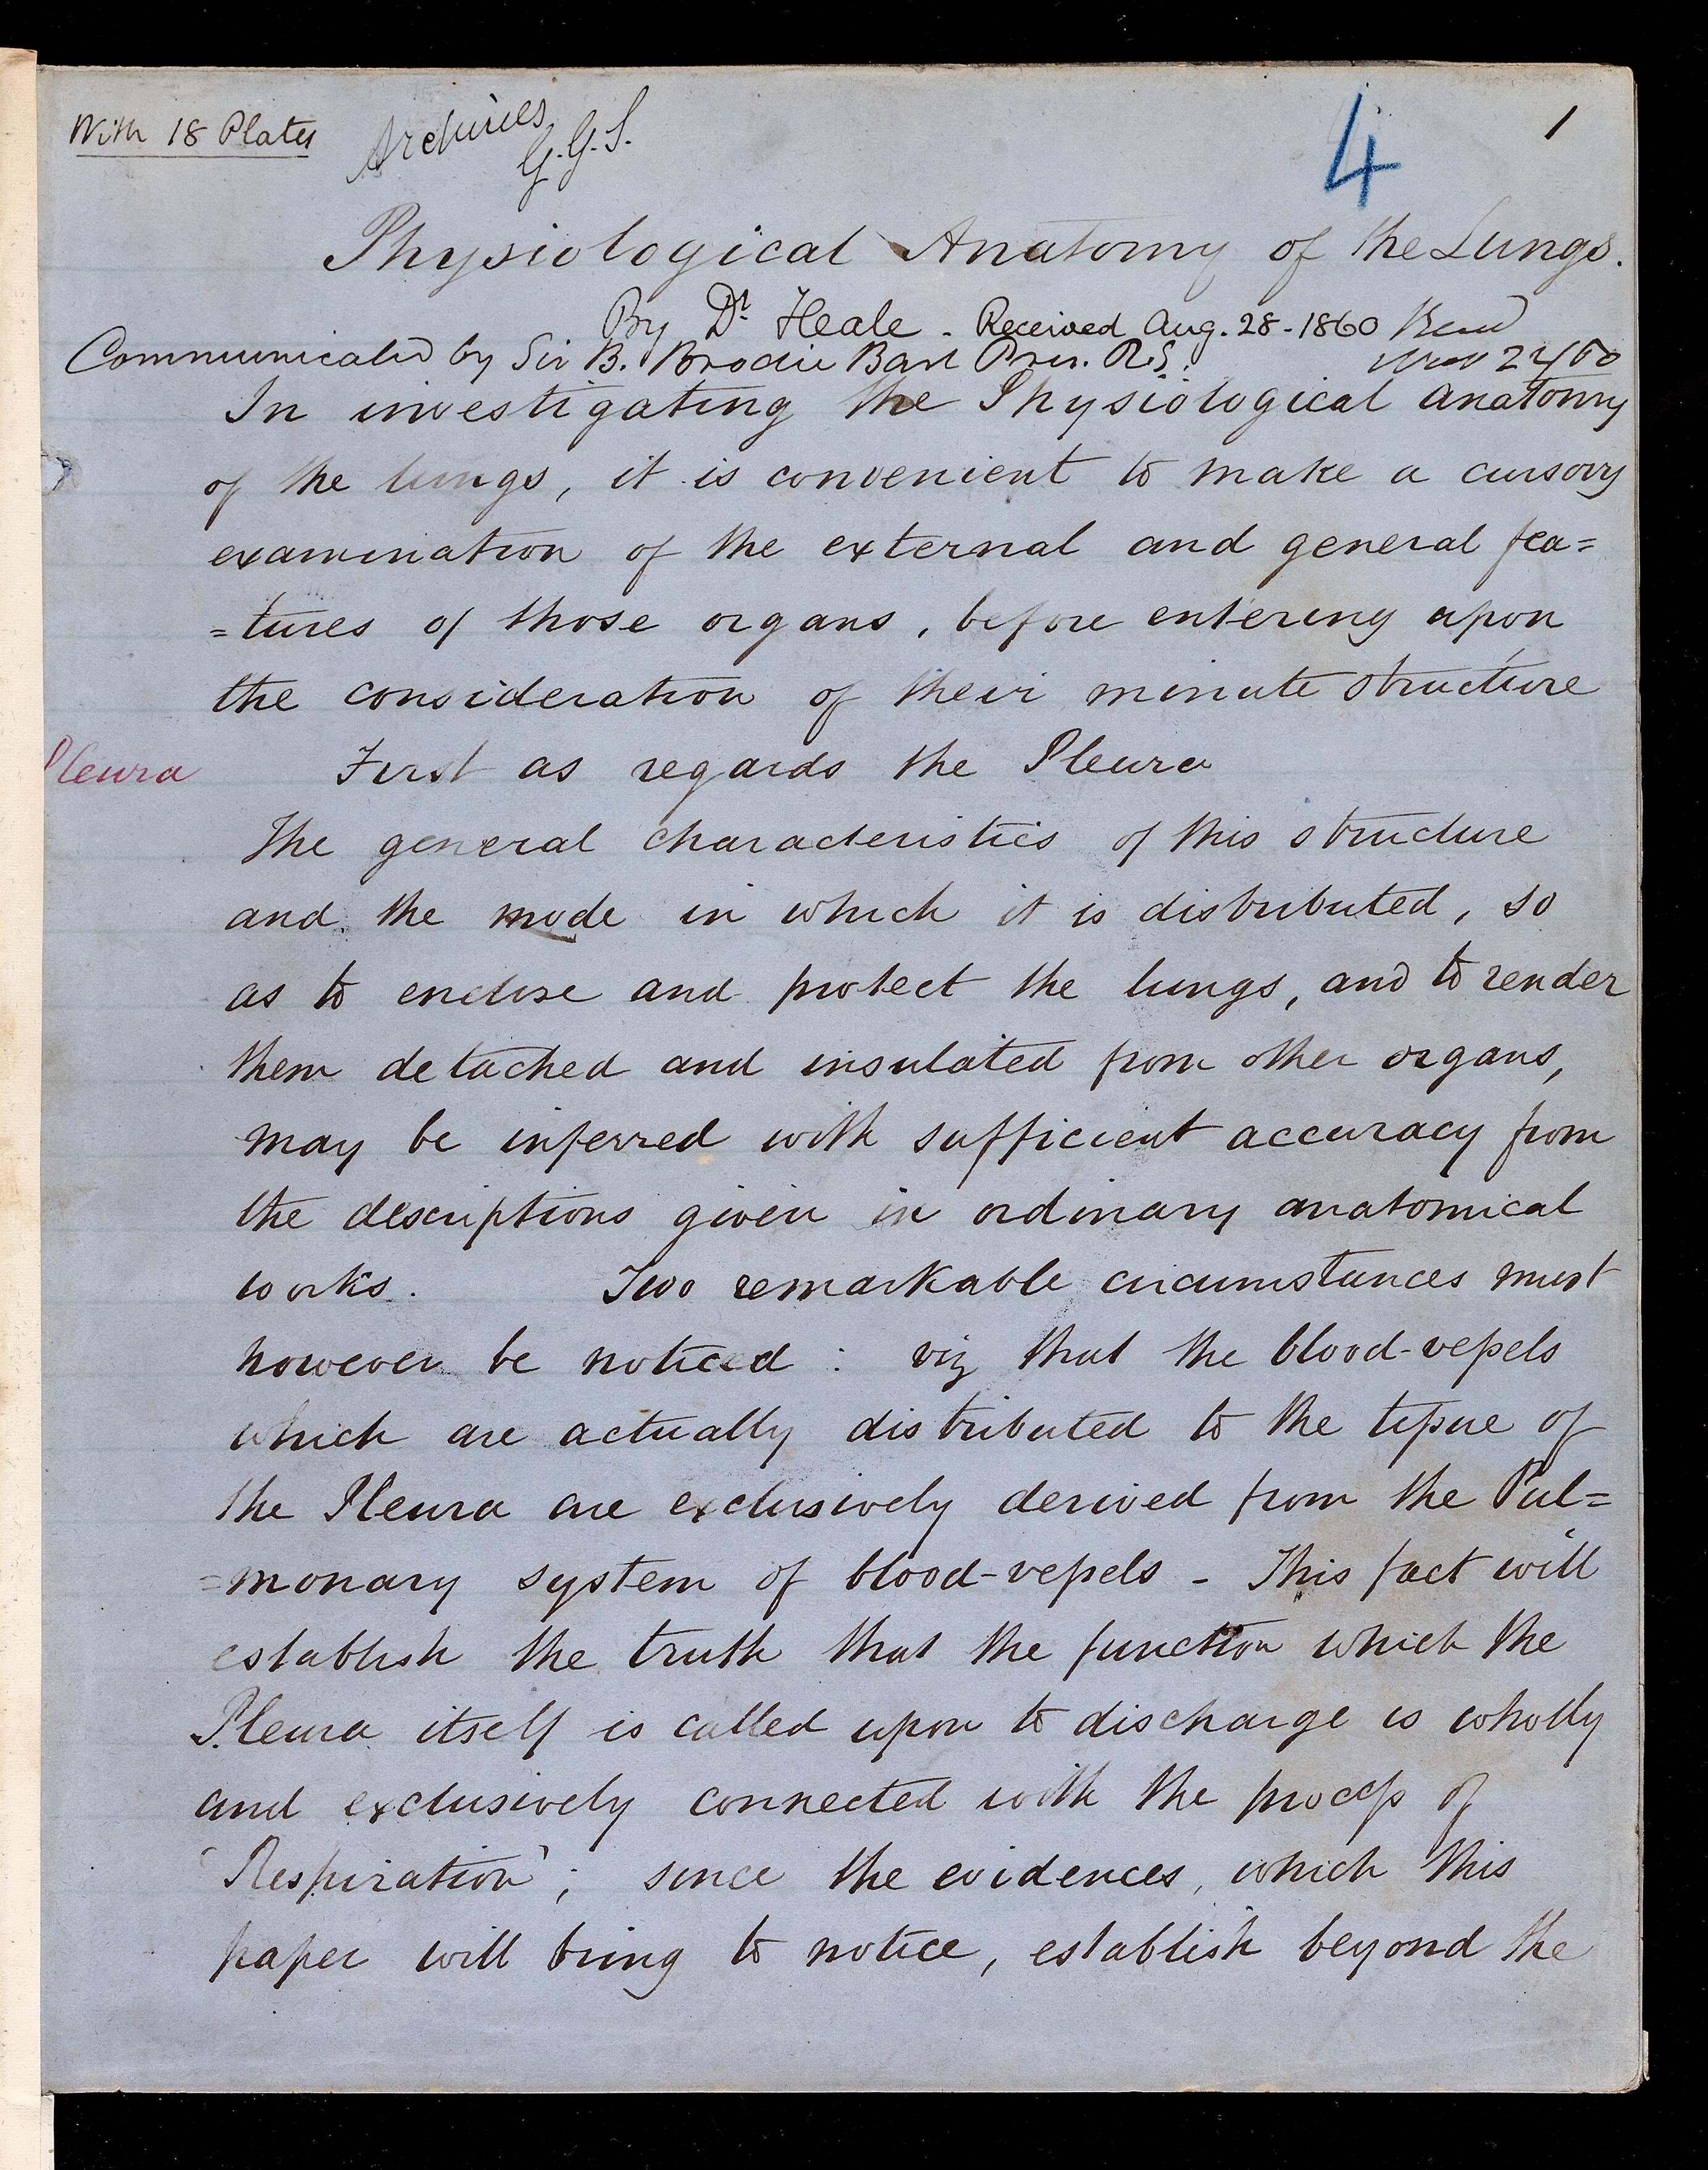 With 18 Plates
Archives
G.G.S.
4
1
Physiological Anatomy of the Lungs.
By Dr. Heale - Received Aug. 28 - 1860 Read
Communicated by Sir B. Brodie Bart Pres. R.S.
In investigating the Physiological anatomy
of the lungs, it is convenient to make a cursory
examination of the external and general fea=
=tures of those organs, before entering upon
the consideration of their minute structure
Pleura
First as regards the Pleura
The general characteristics of this structure
and the mode in which it is distributed, so
as to enclose and protect the lungs, and to render
them detached and insulated from other organs,
may be inferred with sufficient accuracy from
the descriptions given in ordinary anatomical
works. Two remarkable circumstances must
however be noticed : viz that the blood-vessels
which are actually distributed to the tissue of
the Pleura are exclusively derived from the Pul=
=monary system of blood-vessels - This fact will
establish the truth that the function which the
Pleura itself is called upon to discharge is wholly
and exclusively connected with the process of
'Respiration'; since the evidences, which this
paper will bring to notice, establish beyond the